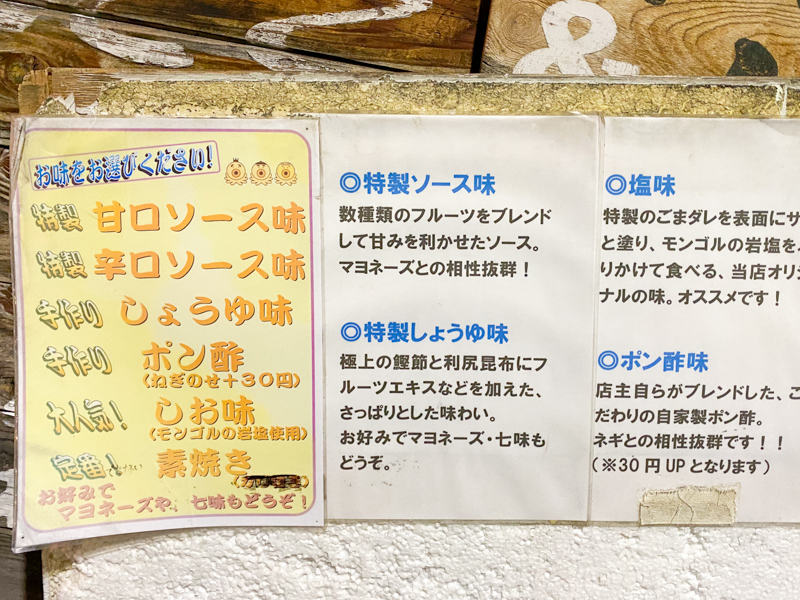 &
お味をお選びください!
特製 甘口ソース味
特製 辛口ソース味
手作り しょうゆ味
手作り ポン酢
(ねぎのせ+30円)
大人気! しお味
(モンゴルの岩塩使用)
定番! 素焼き
お好みで
マヨネーズや、七味もどうぞ!
◎特製ソース味
数種類のフルーツをブレンド
して甘みを利かせたソース。
マヨネーズとの相性抜群!
◎特製しょうゆ味
極上の鰹節と利尻昆布にフ
ルーツエキスなどを加えた、
さっぱりとした味わい。
お好みでマヨネーズ・七味も
どうぞ。
◎塩味
特製のごまダレを表面にサ
と塗り、モンゴルの岩塩を
りかけて食べる、当店オリ
ナルの味。オススメです!
◎ポン酢味
店主自らがブレンドした、こ
だわりの自家製ポン酢。
ネギとの相性抜群です!!
(※30円UPとなります)